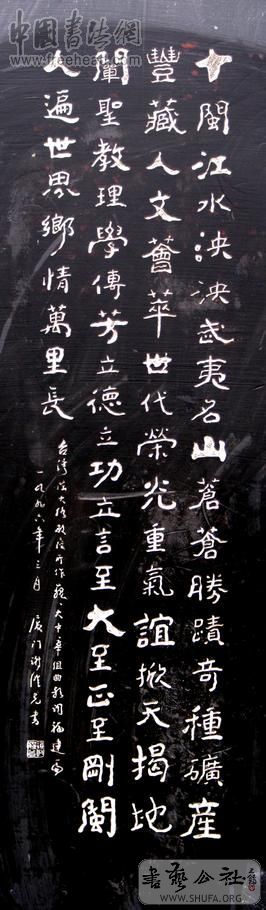 七閩江水泱泱武夷名山蒼蒼勝蹟奇種礦產
豐藏人文薈萃世代榮光重氣誼掀天揭地
闡聖教理學傳芳立德立功立言至大至正至剛閩
人遍世界鄉情萬里長
大中華組曲 福建
一九九六年三月 廈門謝澄光書
中國書法網
www.freehead.com
書藝公社
WWW.SHUFA.ORG